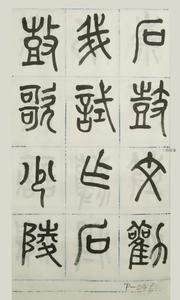 石鼓文勸
我試作石
鼓歌少陵